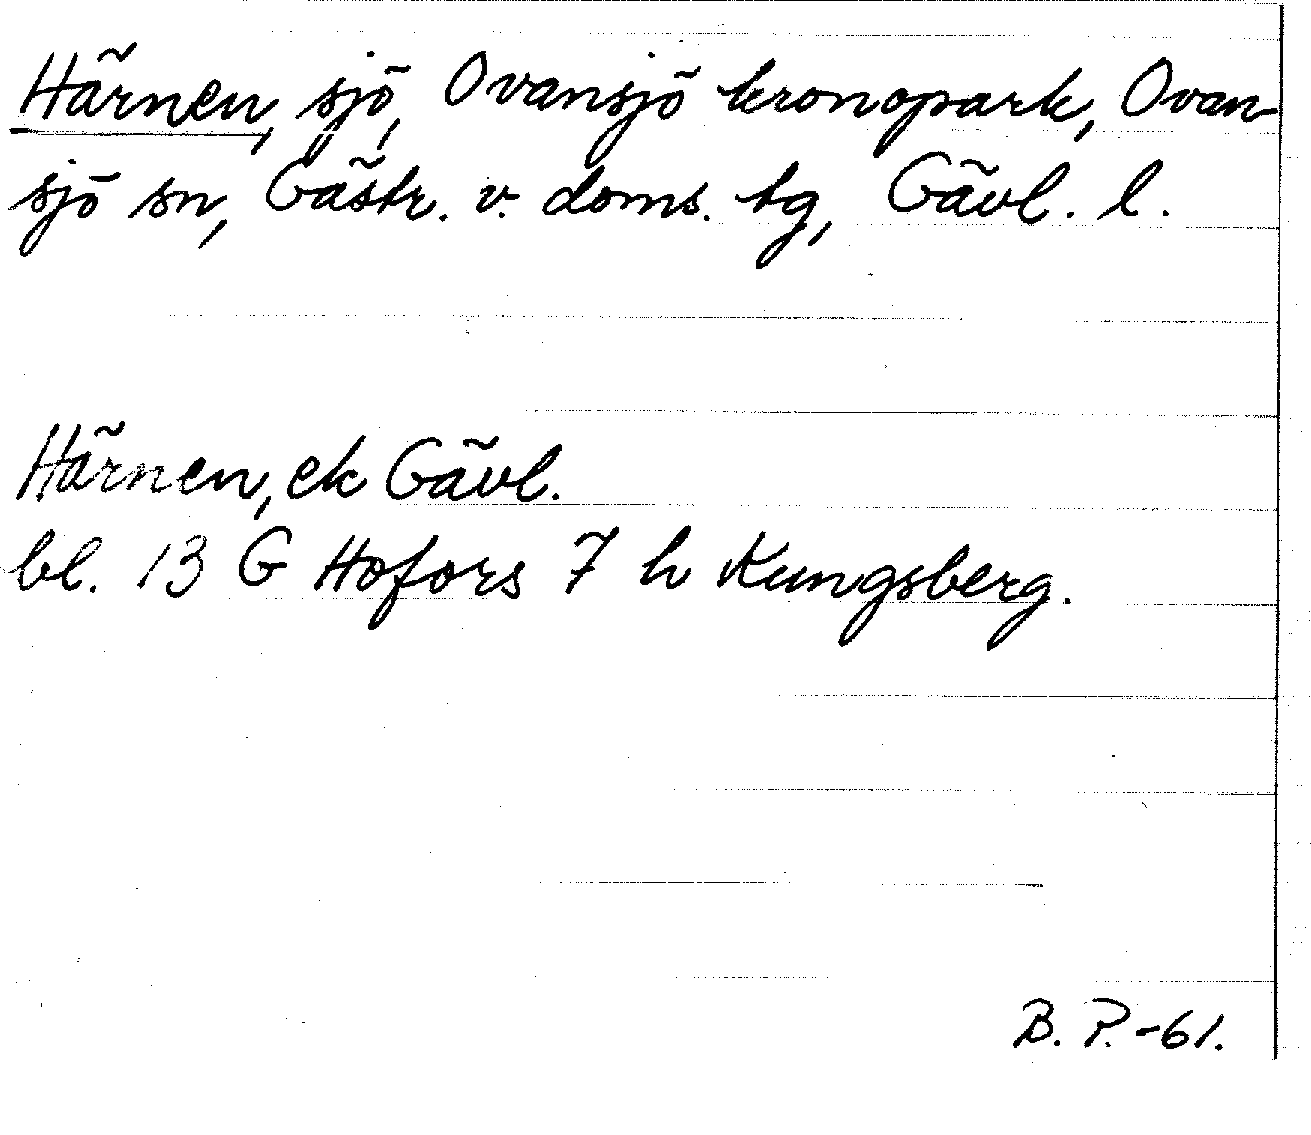 Härnen, sjö, Ovansjö kronopark, Ovan-
sjö sn, Gästr. v. doms. tg, Gävl. l.
Härnen, ek Gävl.
bl. 13 G Hofors 7 h Kungsberg.
B. P. -61.